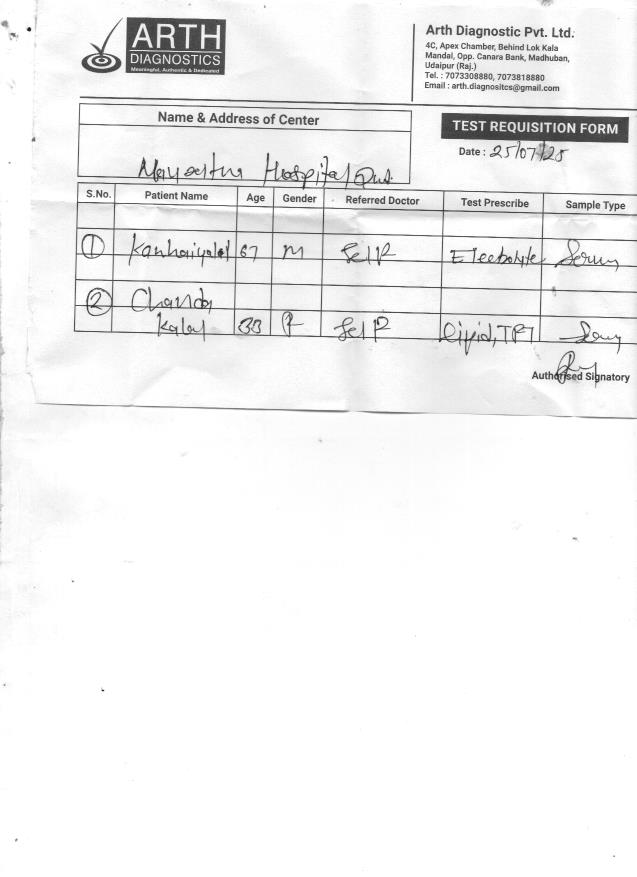 ARTH
DIAGNOSTICS
Meaningful, Authentic & Dedicated
Arth Diagnostic Pvt. Ltd.
4C, Apex Chamber, Behind Lok Kala
Mandal, Opp. Canara Bank, Madhuban,
Udaipur (Raj.)
Tel. : 7073308880, 7073818880
Email : arth.diagnositcs@gmail.com
Name & Address of Center
TEST REQUISITION FORM
Date : 25/07/25
Hospital
S.No. Patient Name Age Gender Referred Doctor Test Prescribe Sample Type
1 Kanhaiyalal 67 M Self Electrolyte Serum
2 Chanda
Kala 33 F Self Lipid, TFT
Authorised Signatory